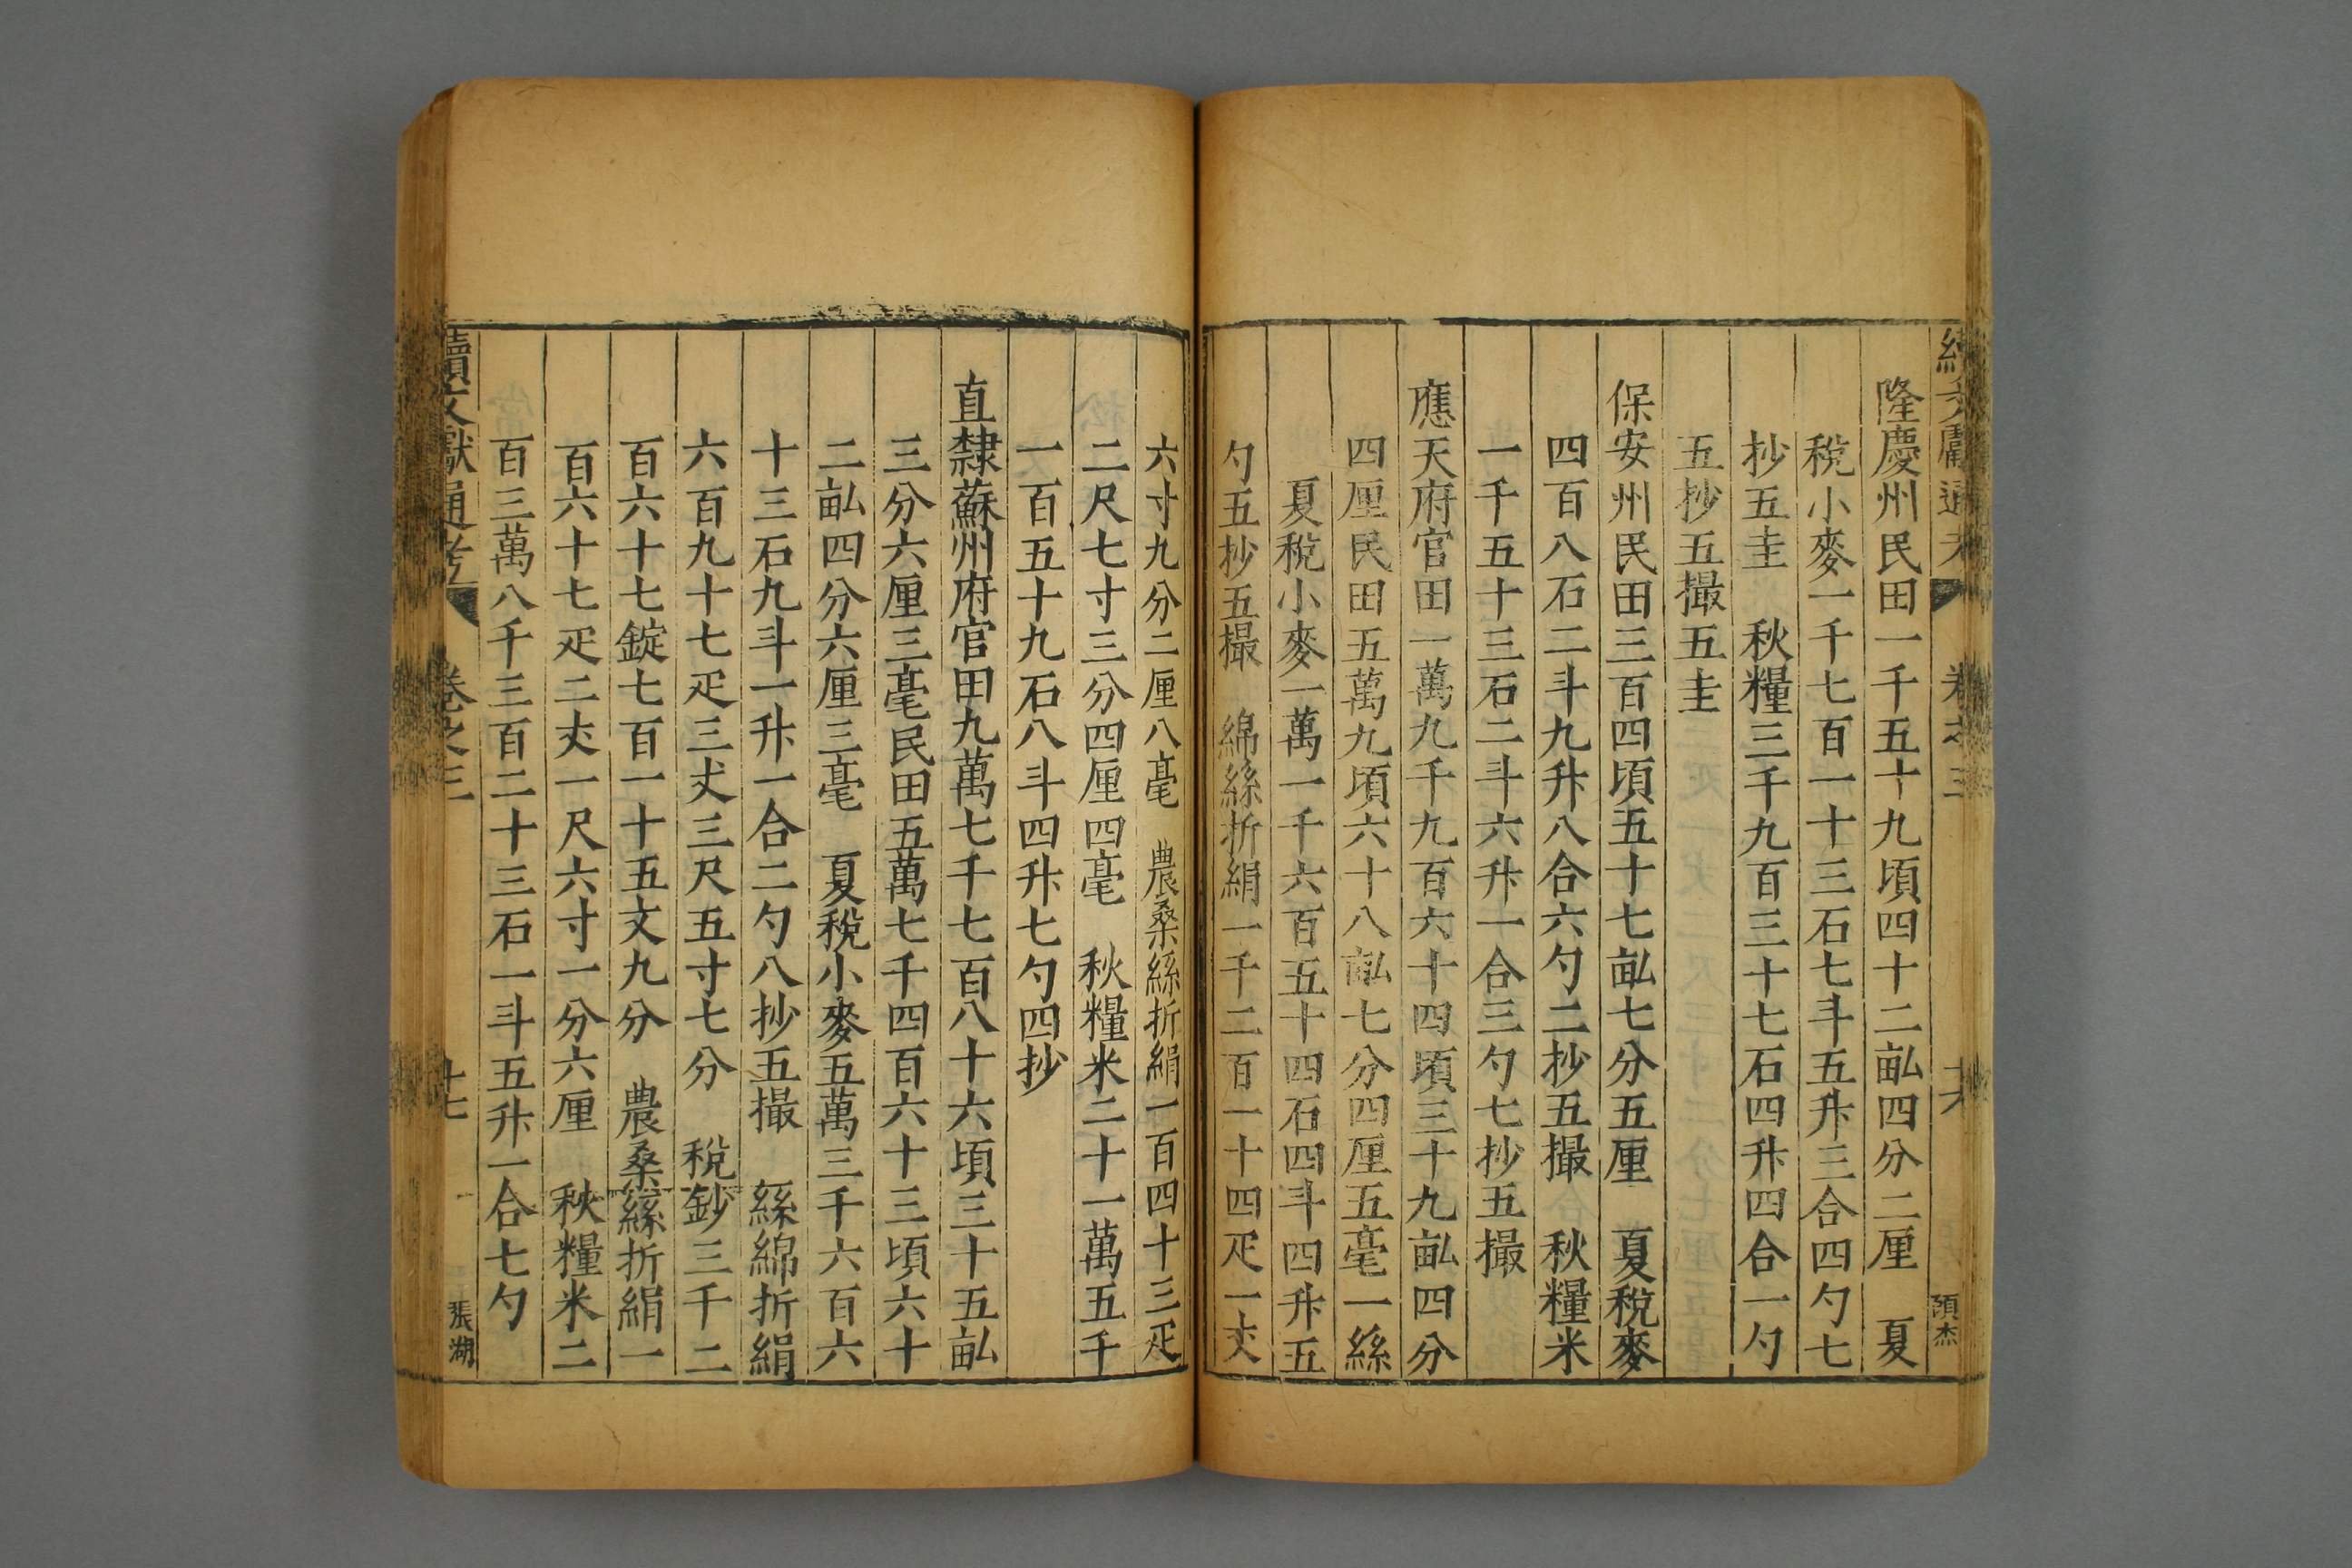 隆慶州民田一千五十九頃四十二畝四分二厘　夏
稅小麥一千七百一十三石七斗五升三合四勺七
抄五圭　秋糧三千九百三十七石四升四合一勺
五抄五撮五圭
保安州民田三百四頃五十七畝七分五厘　夏稅麥
四百八石二斗九升八合六勺二抄五撮　秋糧米
一千五十三石二斗六升一合三勺七抄五撮
應天府官田一萬九千九百六十四頃三十九畝四分
四厘民田五萬九頃六十八畝七分四厘五毫一絲
夏稅小麥一萬一千六百五十四石四斗四升五
勺五抄五撮　綿絲折絹一千二百一十四疋一丈
六寸九分二厘八毫　農桑絲折絹一百四十三疋
二尺七寸三分四厘四毫　秋糧米二十一萬五千
一百五十九石八斗四升七勺四抄
直隸蘇州府官田九萬七千七百八十六頃三十五畝
三分六厘三毫民田五萬七千四百六十三頃六十
二畝四分六厘三毫　夏稅小麥五萬三千六百六
十三石九斗一升一合二勺八抄五撮　絲綿折絹
六百九十七疋三丈三尺五寸七分　稅鈔三千二
百六十七錠七百一十五文九分　農桑絲折絹一
百六十七疋二丈一尺六寸一分六厘　秋糧米二
百三萬八千三百二十三石一斗五升一合七勺
續文獻通考　卷之三　十七　張湖